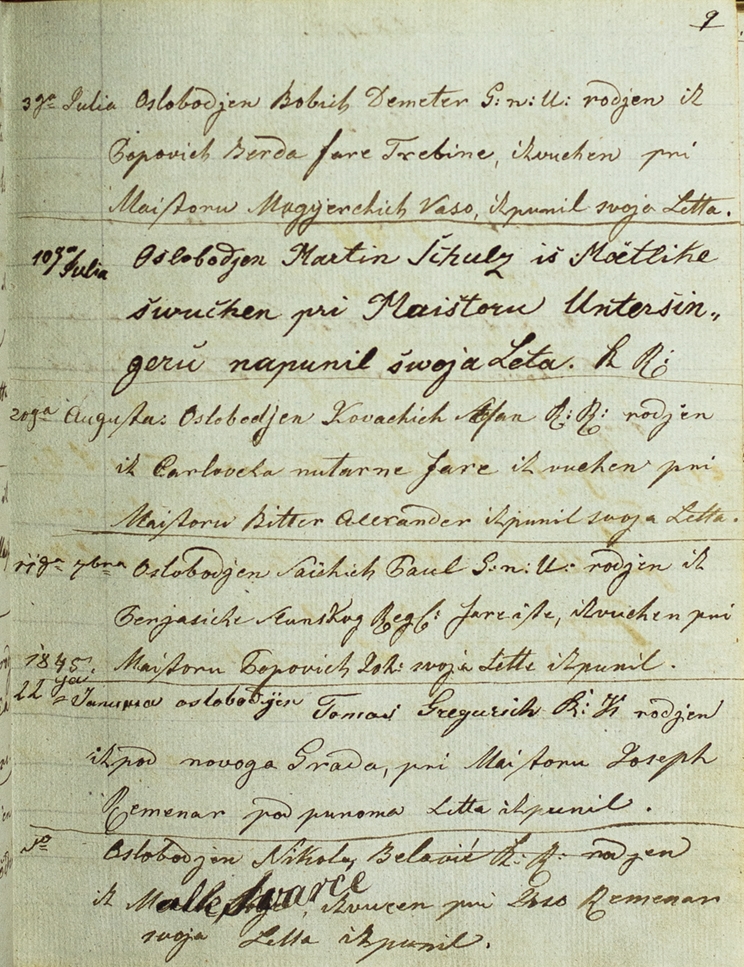 9
3ga Julia Oslobodjen Bobich Demeter G: n: U: rodjen iz
Popovich Berda fare Trebine, izvuchen pri
Maistoru Magyerchich Vaso, izpunil svoja Letta.
10ga Julia Oslobodjen Martin Šchulz iš Mötlike
švučhen pri Maištoru Unteršin„
gerš napunil švoja Leta. R R:
20ga Augusta: Oslobodjen Kovachich Stefan R: R: rodjen
iz Carlovcza nutarne fare izvuchen pri
Maistoru Bitter Alexander izpunil svoja Letta.
7bra Oslobodjen Paul G: n: U: rodjen iz
Perjasicze Slunskog Reg: fare iste, izvuchen pri
Maistoru Popovich Joh: svoja Lette izpunil.
1845:
22ga Januara oslobodjen Tomas Gregurich R: K rodjen
izpod novoga Grada, pri Maistoru Joseph
Remenar pod punoma Letta izpunil.
do Oslobodjen Nikolaj Belavić R: R: rodjen
iz Malke Švarce, izvucen pri Joso Remenar
svoja Letta izpunil.